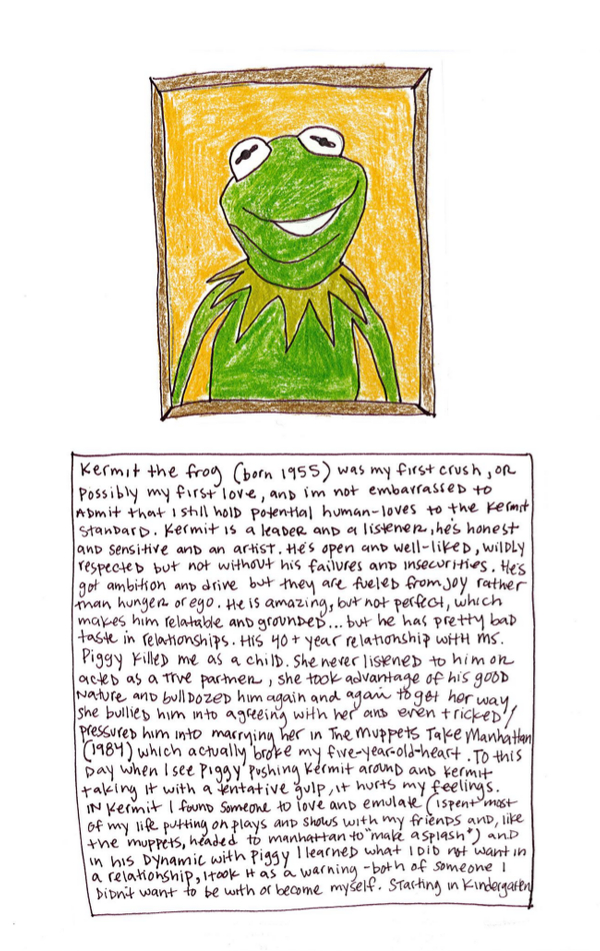 Kermit the frog (born 1955) was my first crush, or
possibly my first love, and i'm not embarrassed to
admit that I still hold potential human-loves to the Kermit
standard. Kermit is a leader and a listener, he's honest
and sensitive and an artist. He's open and well-liked, wildly
respected but not without his failures and insecurities. He's
got ambition and drive but they are fueled from joy rather
than hunger or ego. He is amazing, but not perfect, which
makes him relatable and grounded... but he has pretty bad
taste in relationships. His 40+ year relationship with Ms.
Piggy killed me as a child. She never listened to him or
acted as a true partner, she took advantage of his good
nature and bulldozed him again and again to get her way,
she bullied him into agreeing with her and even tricked/
pressured him into marrying her in The Muppets Take Manhattan
(1984) which actually broke my five-year-old-heart. To this
day when I see Piggy pushing Kermit around and Kermit
taking it with a tentative gulp, it hurts my feelings.
In Kermit I found someone to love and emulate (I spent most
of my life putting on plays and shows with my friends and, like
the muppets, headed to manhattan to "make a splash") and
in his dynamic with Piggy I learned what I did not want in
a relationship, I took it as a warning - both of someone I
didn't want to be with or become myself. Starting in Kindergarten